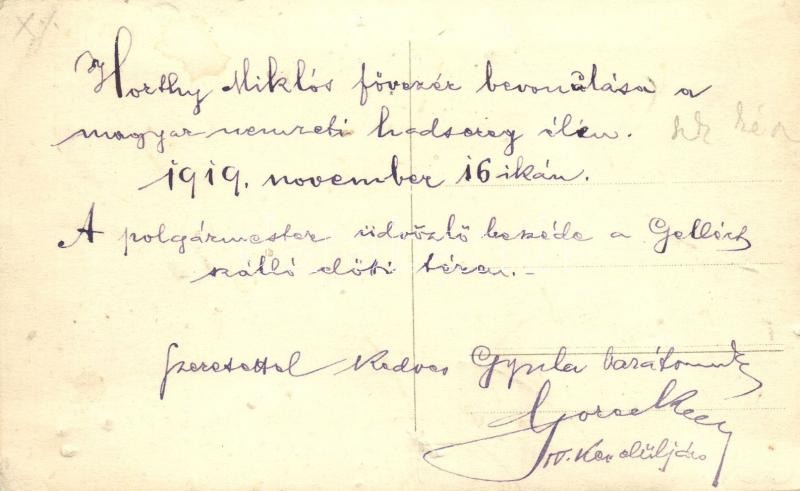 Horthy Miklós fővezér bevonulása a
magyar nemzeti hadsereg élén.
1919. november 16 ikán.
A polgármester üdvözlő beszéde a Gellért
szálló előtti téren.-
Szeretettel kedves Gyula barátomnak